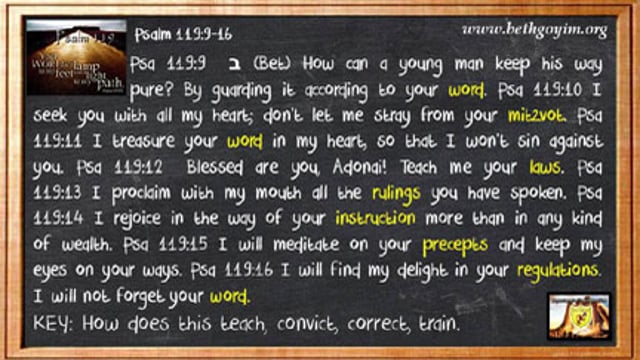 Psalm 119:9-16
www.bethgoyim.org
Psalm 119
WORD
lamp
feet
light
path.
Psa 119:9 ב (Bet) How can a young man keep his way
pure? By guarding it according to your word. Psa 119:10 I
seek you with all my heart; don't let me stray from your mitzvot. Psa
119:11 I treasure your word in my heart, so that I won't sin against
you. Psa 119:12 Blessed are you, Adonai! Teach me your laws. Psa
119:13 I proclaim with my mouth all the rulings you have spoken. Psa
119:14 I rejoice in the way of your instruction more than in any kind
of wealth. Psa 119:15 I will meditate on your precepts and keep my
eyes on your ways. Psa 119:16 I will find my delight in your regulations.
I will not forget your word.
KEY: How does this teach, convict, correct, train.